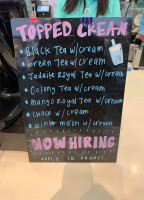 TOPPED CREAM
Black Tea w/cream
Green Tea w/cream
Jadeite Royal Tea w/cream
Oolong Tea w/cream
Mango Royal Tea w/cream
Choco w/cream
Winter melon w/cream
NOW HIRING
APPLY IN FRONT!